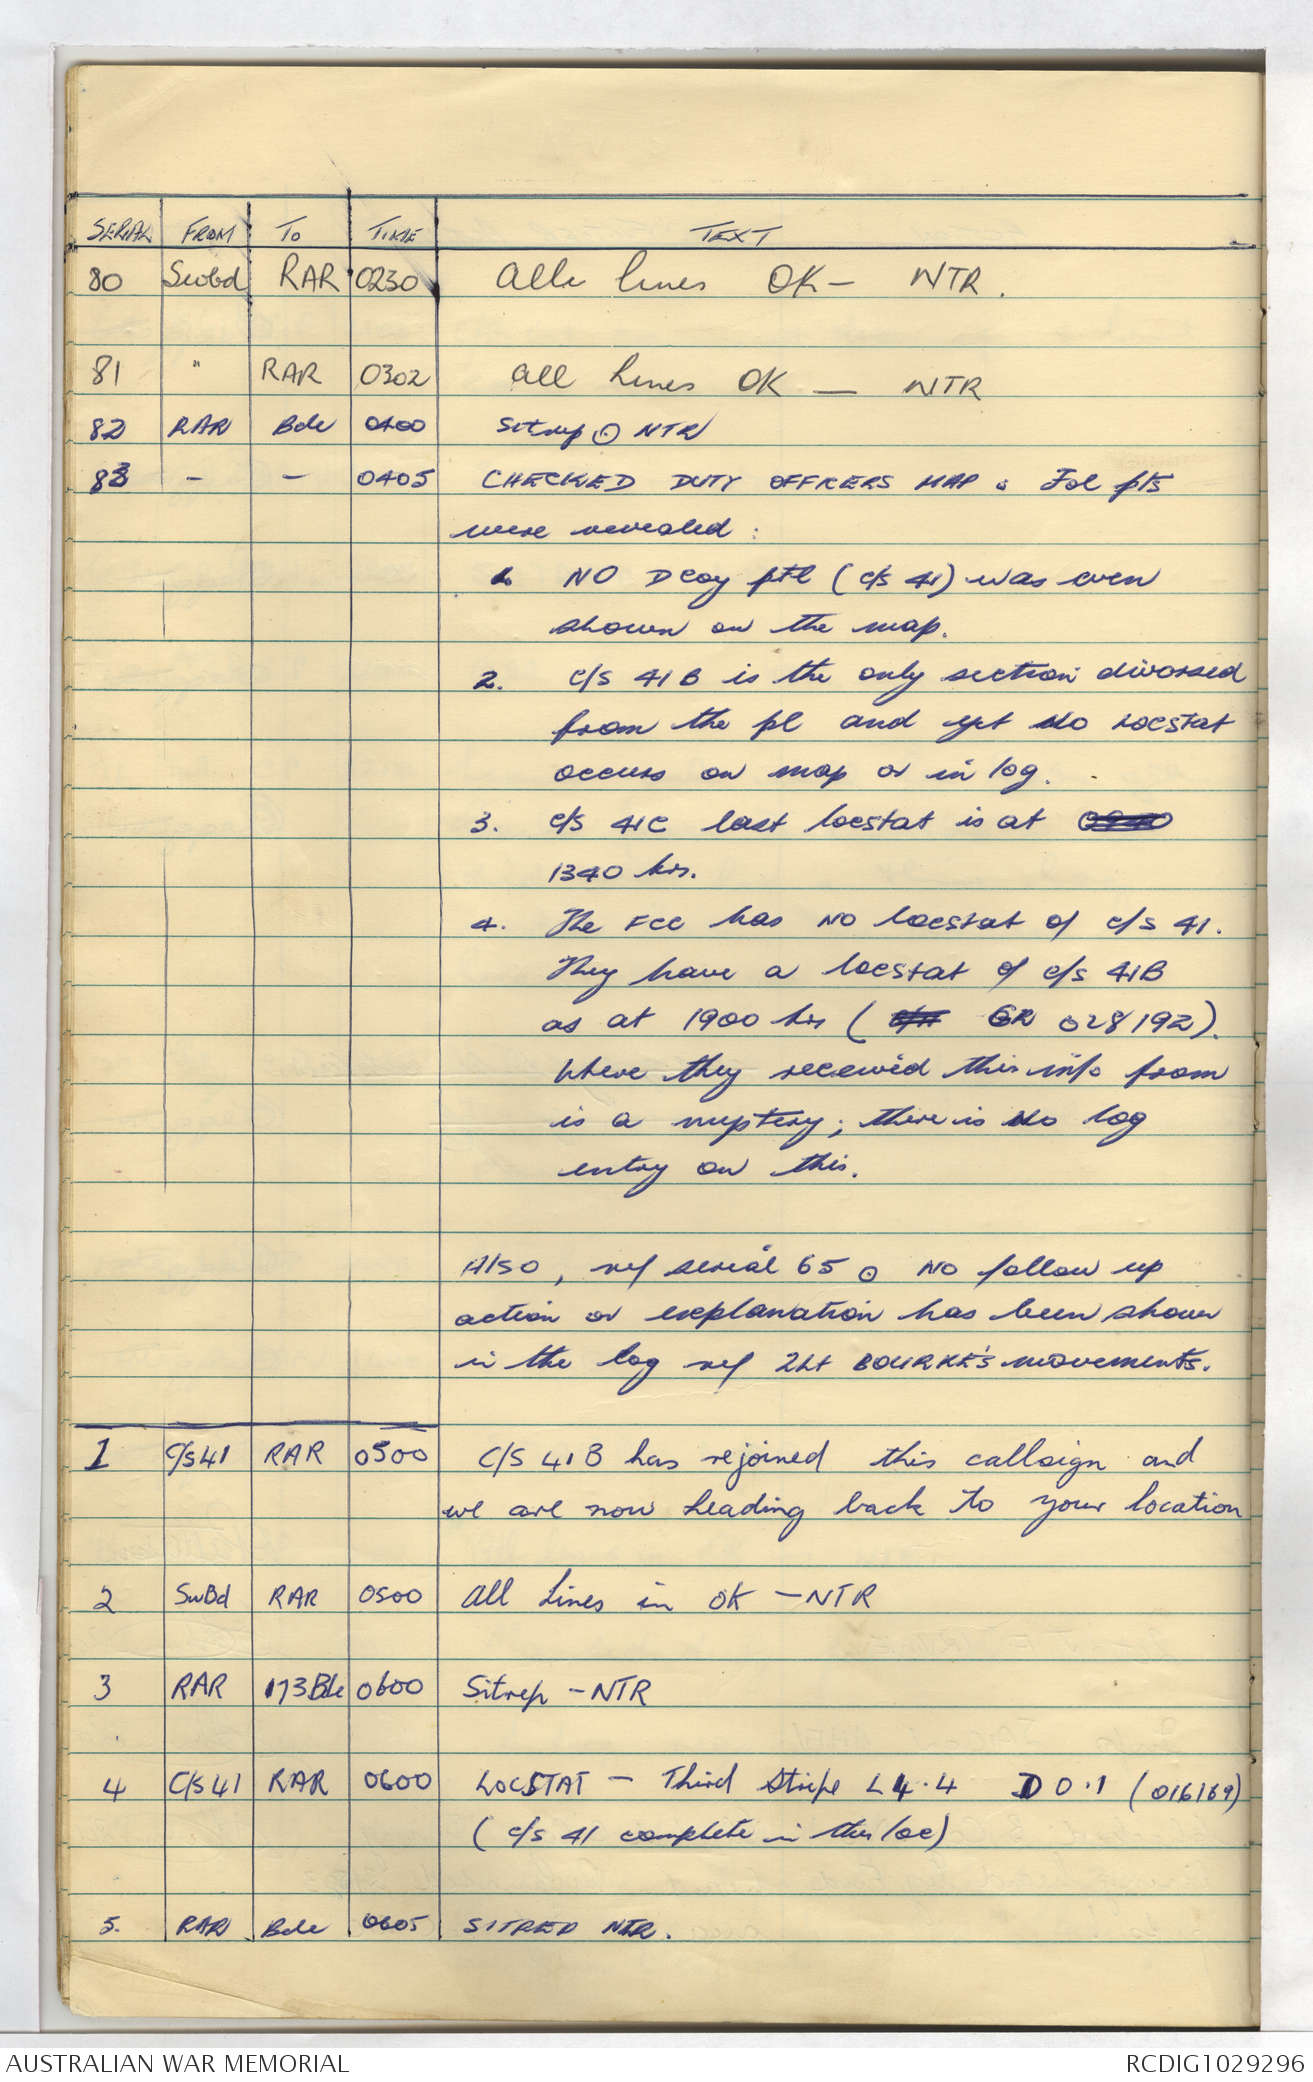 SERIAL FROM TO TIME TEXT
80 Swbd RAR 0230 All lines OK - NTR.
81 " RAR 0302 All lines OK - NTR
82 RAR Bde 0400 Sitrep ⊙ NTR
83 - - 0405 CHECKED DUTY OFFICERS MAP. Fol pts
were revealed:
1. NO Decoy ptl (C/S 41) was even
shown on the map.
2. C/S 41B is the only section divorsed
from the pl and yet No Locstat
occurs on map or in log.
3. C/S 41C last locstat is at 0940
1340 hrs.
4. The FCC has NO locstat of C/S 41.
They have a locstat of C/S 41B
as at 1900 hrs ( GR 028192).
Where they received this info from
is a mystery; there is No log
entry on this.
Also, ref serial 65 ⊙ No follow up
action or explanation has been shown
in the log ref 2Lt BOURKE'S movements.
1 C/S 41 RAR 0500 C/S 41B has rejoined this callsign and
we are now heading back to your location
2 SwBd RAR 0500 All Lines in OK - NTR
3 RAR 173Bde 0600 Sitrep - NTR
4 C/S 41 RAR 0600 LOCSTAT - Third Stripe L 4.4 D 0.1 (016169)
(C/S 41 complete in this loc)
5. RAR Bde 0605 SITREP NTR.
AUSTRALIAN WAR MEMORIAL RCDIG1029296